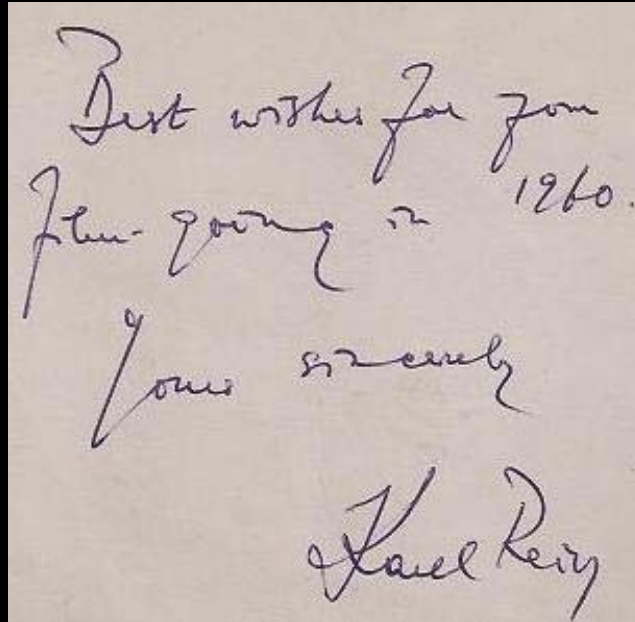 Best wishes for your
film-going in 1960.
Yours sincerely
Karel Reisz